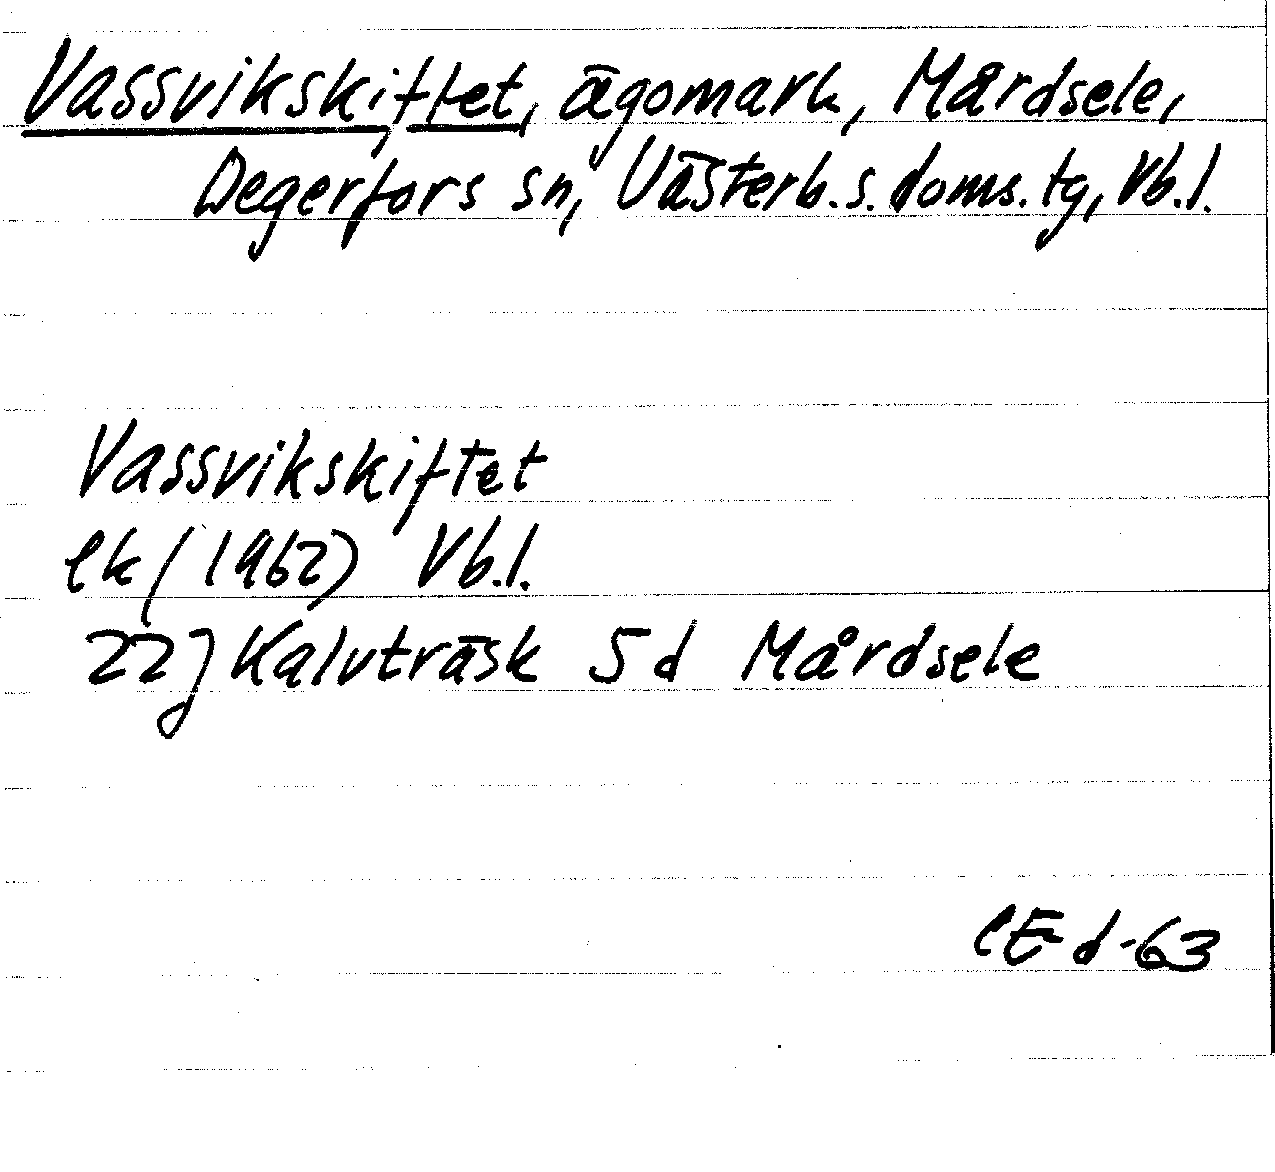 Vassvikskiftet, ägomark, Mårdsele,
Degerfors sn, Västerb. s. doms. tg, Vb. l.
Vassvikskiftet
ek (1962) Vb. l.
22J Kalvträsk 5 d Mårdsele
CEd-63